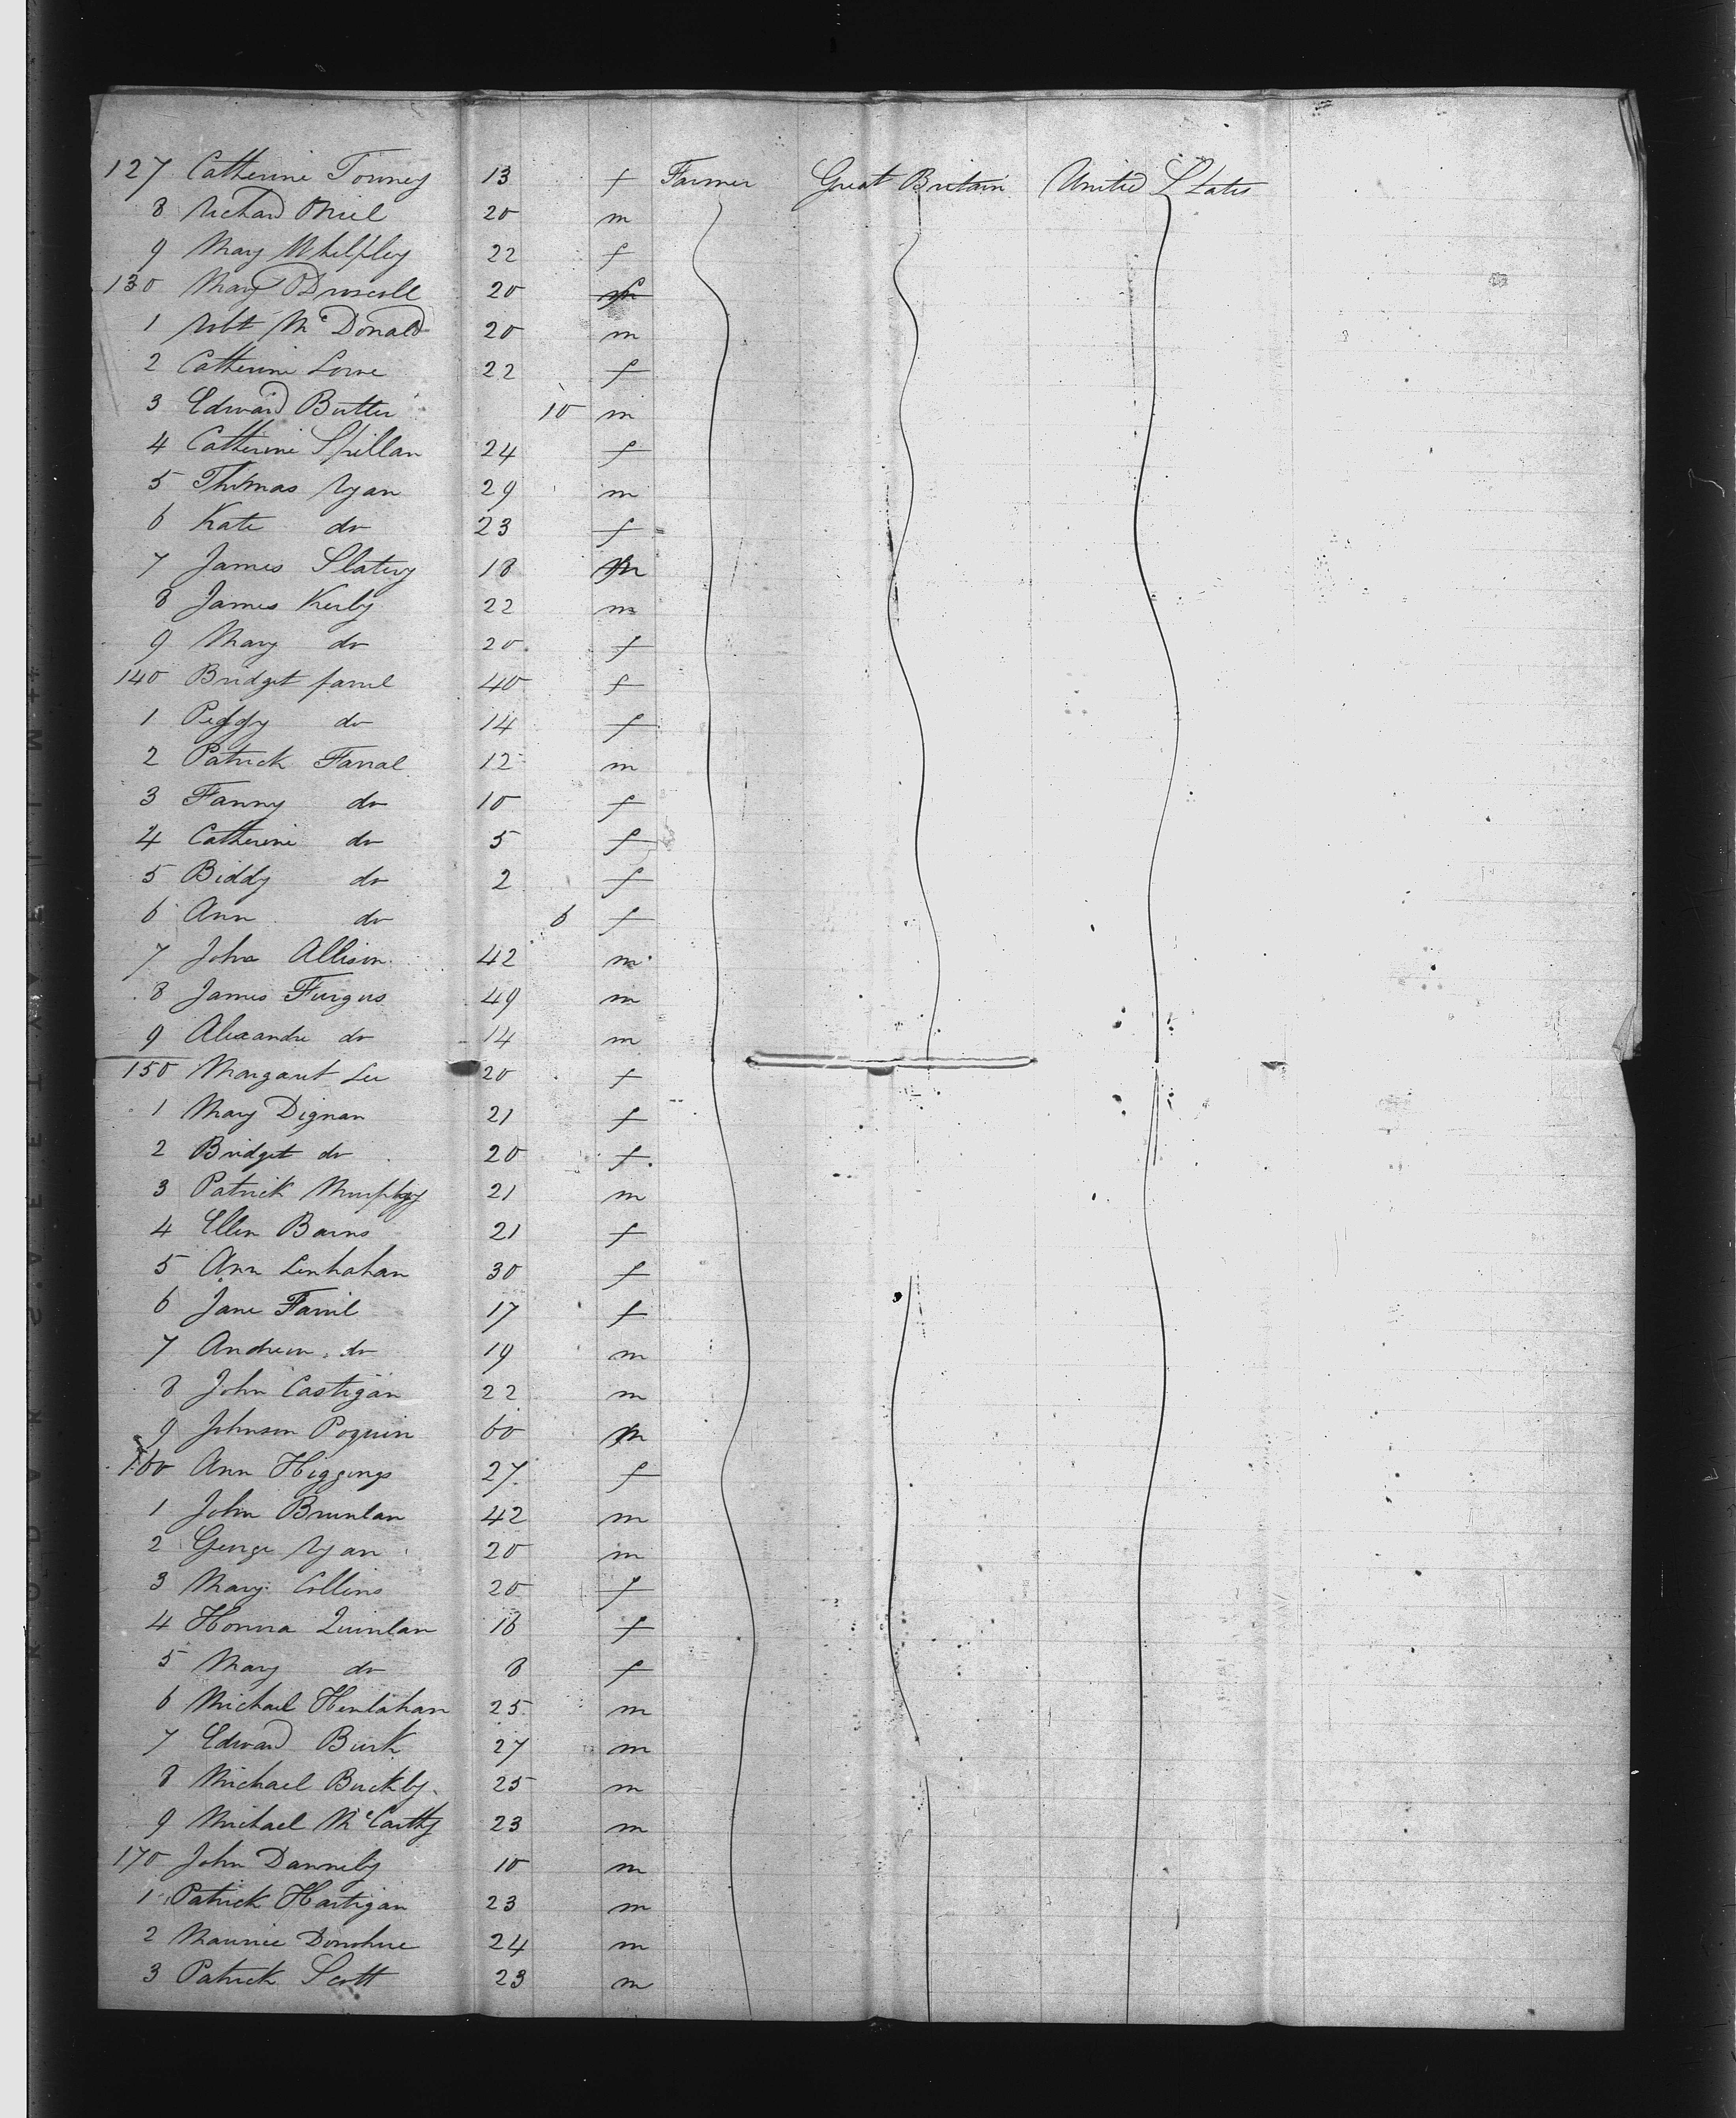 127 Catherine Tonney 13 f Farmer Great Britain United States
8 Richard Oniel 20 m
9 Mary Whelpley 22 f
130 Mary O Driscoll 20 f
1 Robt McDonald 20 m
2 Catherine Lowe 22 f
3 Edward Butler 10 m
4 Catherine Spillan 24 f
5 Thomas Ryan 29 m
6 Kate do 23 f
7 James Slatery 18 m
8 James Kerby 22 m
9 Mary do 20 f
140 Bridget farrel 40 f
1 Peggy do 14 f
2 Patrick Farral 12 m
3 Fanny do 10 f
4 Catherine do 5 f
5 Biddy do 2 f
6 Ann do 6 f
7 John Allison 42 m
8 James Furgus 49 m
9 Alexandre do 14 m
150 Margaret Lee 20 f
1 Mary Dignan 21 f
2 Bridget do 20 f
3 Patrick Murphy 21 m
4 Ellen Barns 21 f
5 Ann Lenhahan 30 f
6 Jane Farril 17 f
7 Andrew do 19 m
8 John Castigan 22 m
9 Johnson Poquin 60 m
160 Ann Higgings 27 f
1 John Brunlan 42 m
2 George Ryan 20 m
3 Mary Collins 20 f
4 Honora Quinlan 16 f
5 Mary do 8 f
6 Michael Henlahan 25 m
7 Edward Burk 27 m
8 Michael Buckly 25 m
9 Michael McCarthy 23 m
170 John Dannely 10 m
1 Patrick Hartigan 23 m
2 Maurice Donohue 24 m
3 Patrick Scott 23 m